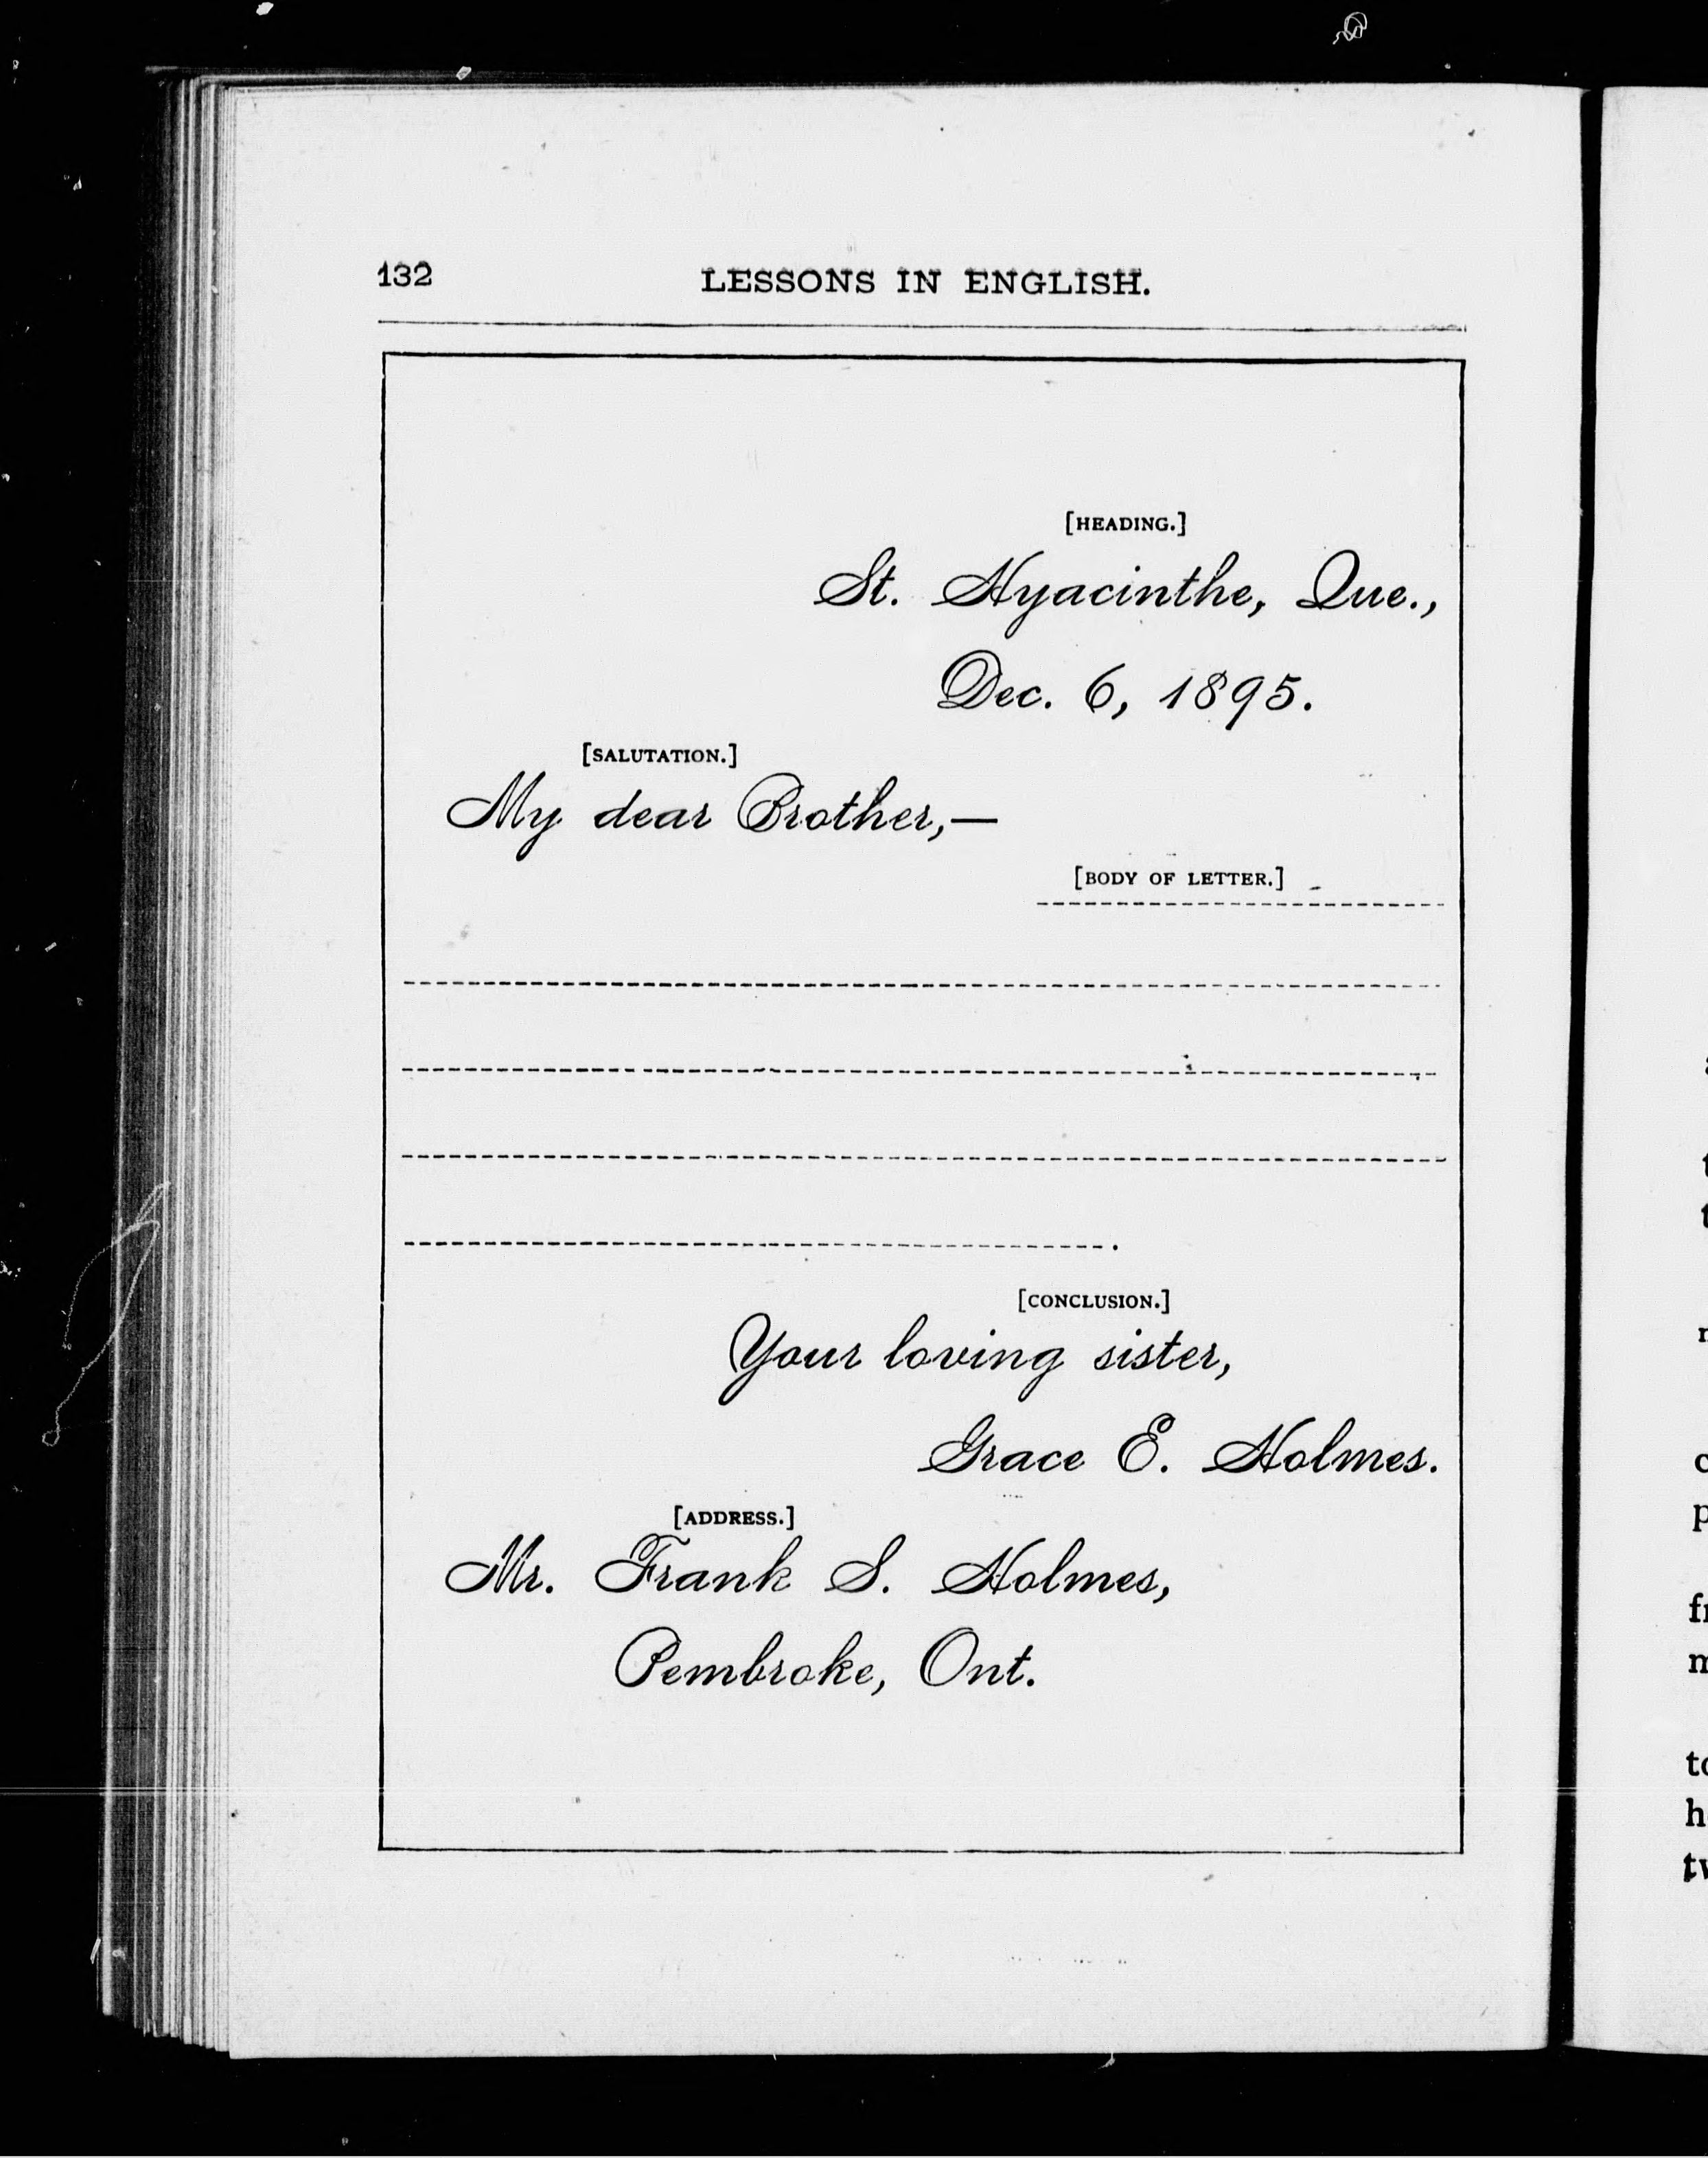 132 LESSONS IN ENGLISH.
[HEADING.]
St. Hyacinthe, Que.,
Dec. 6, 1895.
[SALUTATION.]
My dear Brother,—
[BODY OF LETTER.]
[CONCLUSION.]
Your loving sister,
Grace E. Holmes.
[ADDRESS.]
Mr. Frank S. Holmes,
Pembroke, Ont.